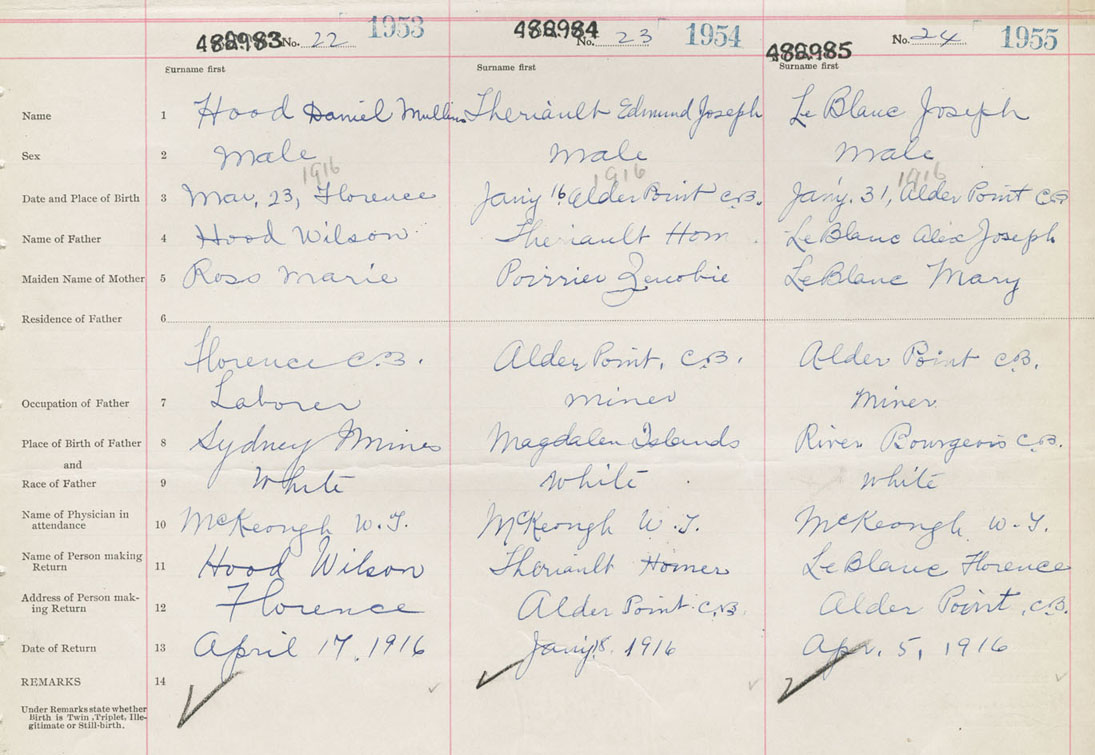 482983 No. 22 1953 482984 No. 23 1954 482985 No. 24 1955
Surname first Surname first Surname first
Name 1 Hood Daniel Mullins Theriault Edmund Joseph Le Blanc Joseph
Sex 2 Male Male Male
1916 1916 1916
Date and Place of Birth 3 Mar, 23, Florence Jan'y 16 Alder Point C.B. Jan'y. 31, Alder Point C.B.
Name of Father 4 Hood Wilson Theriault Hom LeBlanc Alex Joseph
Maiden Name of Mother 5 Ross Marie Poirrier Zenobie LeBlanc Mary
Residence of Father 6
Florence C.B. Alder Point, C.B. Alder Point C.B.
Occupation of Father 7 Laborer Miner Miner
Place of Birth of Father 8 Sydney Mines Magdalen Islands River Bourgeois C.B.
and
Race of Father 9 White White White
Name of Physician in
attendance 10 McKeough W. F. McKeough W. F. McKeough W. F.
Name of Person making
Return 11 Hood Wilson Theriault Homer LeBlanc Florence
Address of Person mak-
ing Return 12 Florence Alder Point C.B. Alder Point, C.B.
Date of Return 13 April 17, 1916 Jan'y 18. 1916 Apr. 5, 1916
REMARKS 14
Under Remarks state whether
Birth is Twin, Triplet, Ille-
gitimate or Still-birth.